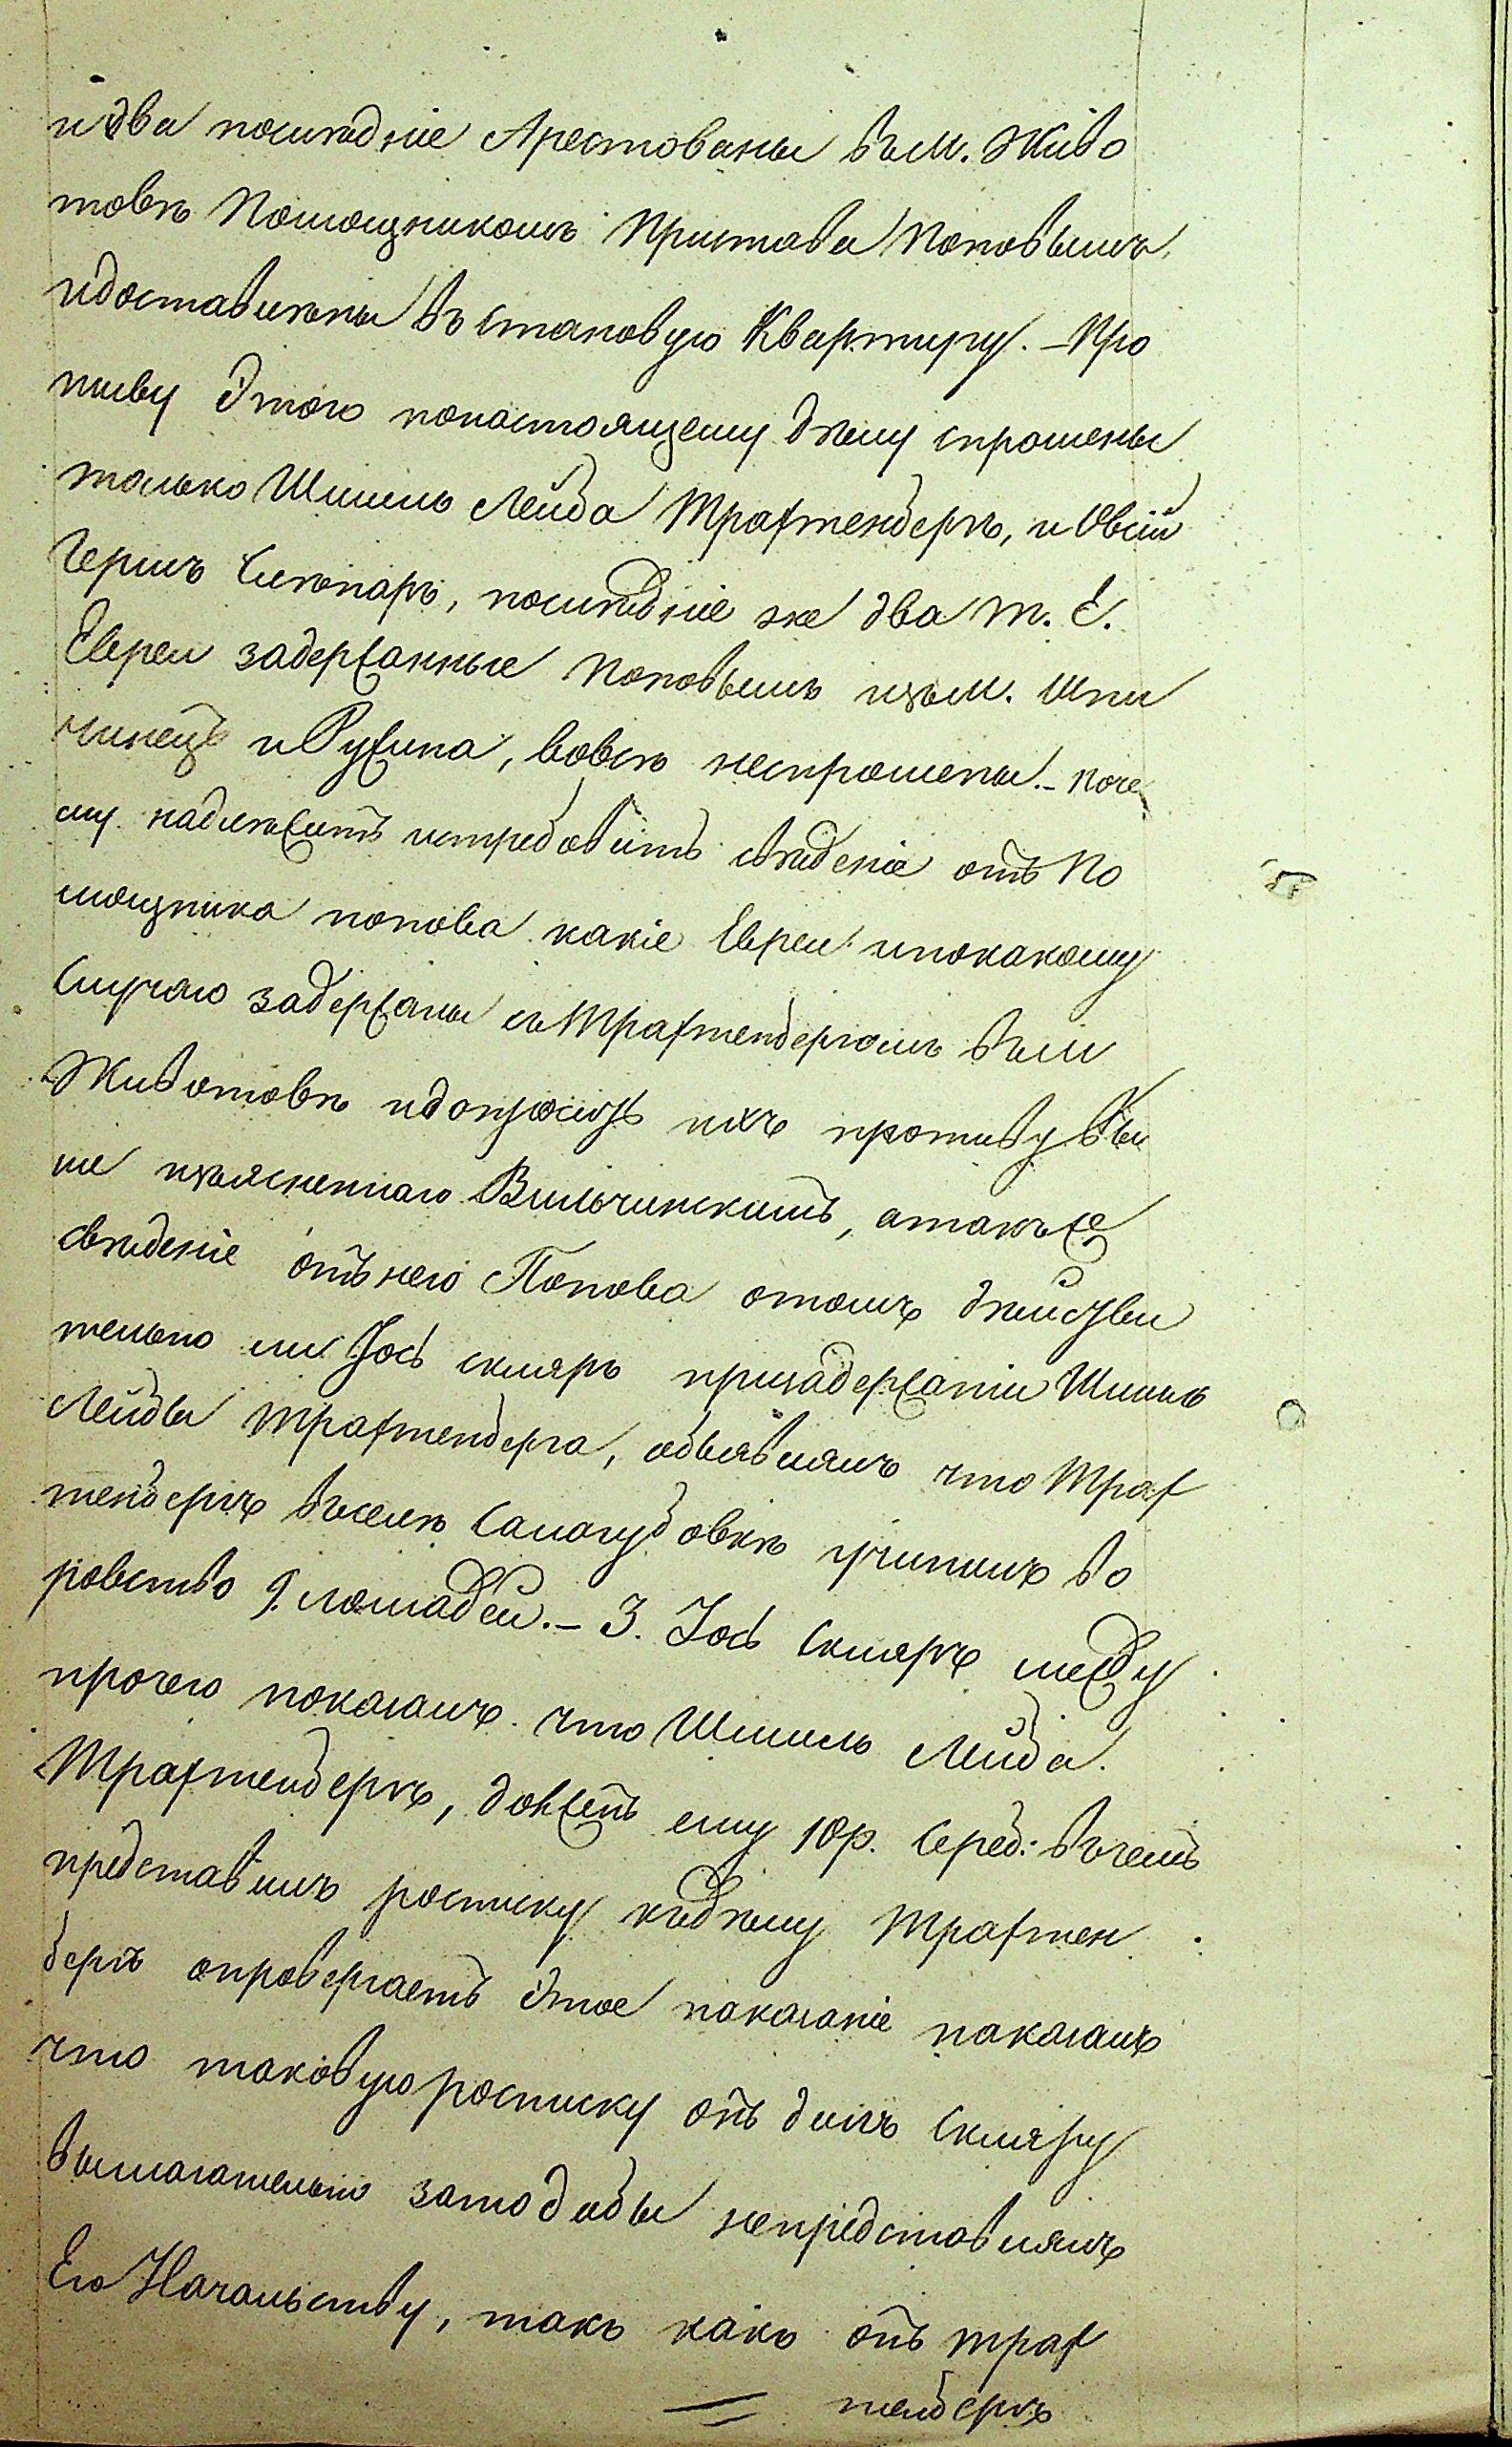 и два послѣдніе Арестованы въ м. Живо
товѣ Помощникомъ Пристава Поповымъ
и доставлены въ становую Квартиру. – Про
тиву этого по настоящему дѣлу спрошены
только Шмиль Лейба Трахтенберъ, и Овсій
Гершъ Слѣпаръ, послѣдніе же два т. е.
Евреи задержанные Поповымъ изъ м. Шпи
чинецъ и Ружина, вовсѣ неспрошены. – Поче
му надлежитъ истребовать свѣденіе отъ По
мощника попова какіе Евреи и по какому
Случаю задержаны съ Трахтенбергомъ въ м
Животовѣ и допросить ихъ противу вы
ше изъясненнаго Вильчинскимъ, а такъ же
свѣденіе отъ него Попова о томъ дѣйстви
тельно ли Іось скляръ при задержаніи Шмиль
Лейбы Трахтенберга, объявлялъ что Трах
тенбергъ въ селѣ Самогудовкѣ учинилъ во
ровство 9. лошадей. – 3. Іось Скляръ между
прочего показалъ что Шмиль Лейба
Трахтенбергъ, долженъ ему 10 р. Сереб: въ чемъ
представилъ росписку къ дѣлу Трахтен
бергъ опровергаетъ этое показаніе показалъ
что таковую росписку онъ далъ Скляру
вымогательно за то дабы не представлялъ
Его Начальству, такъ какъ онъ трах
тенбергъ